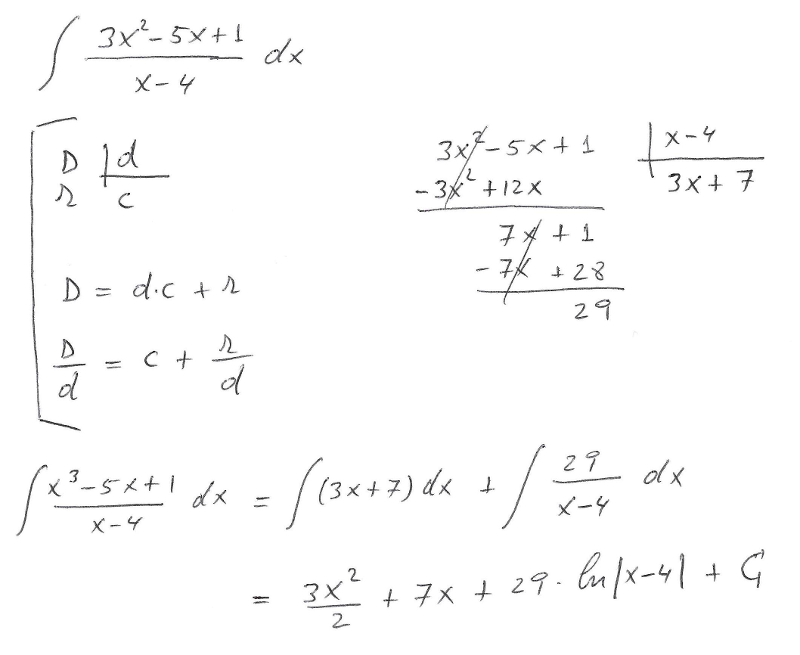 ∫ (3x²-5x+1)/(x-4) dx
D | d
r | c
D = d·c + r
D/d = c + r/d
3x²-5x+1 | x-4
-3x²+12x | 3x+7
7x+1
-7x+28
29
∫ (x³-5x+1)/(x-4) dx = ∫(3x+7)dx + ∫ 29/(x-4) dx
= 3x²/2 + 7x + 29·ln|x-4| + C₁